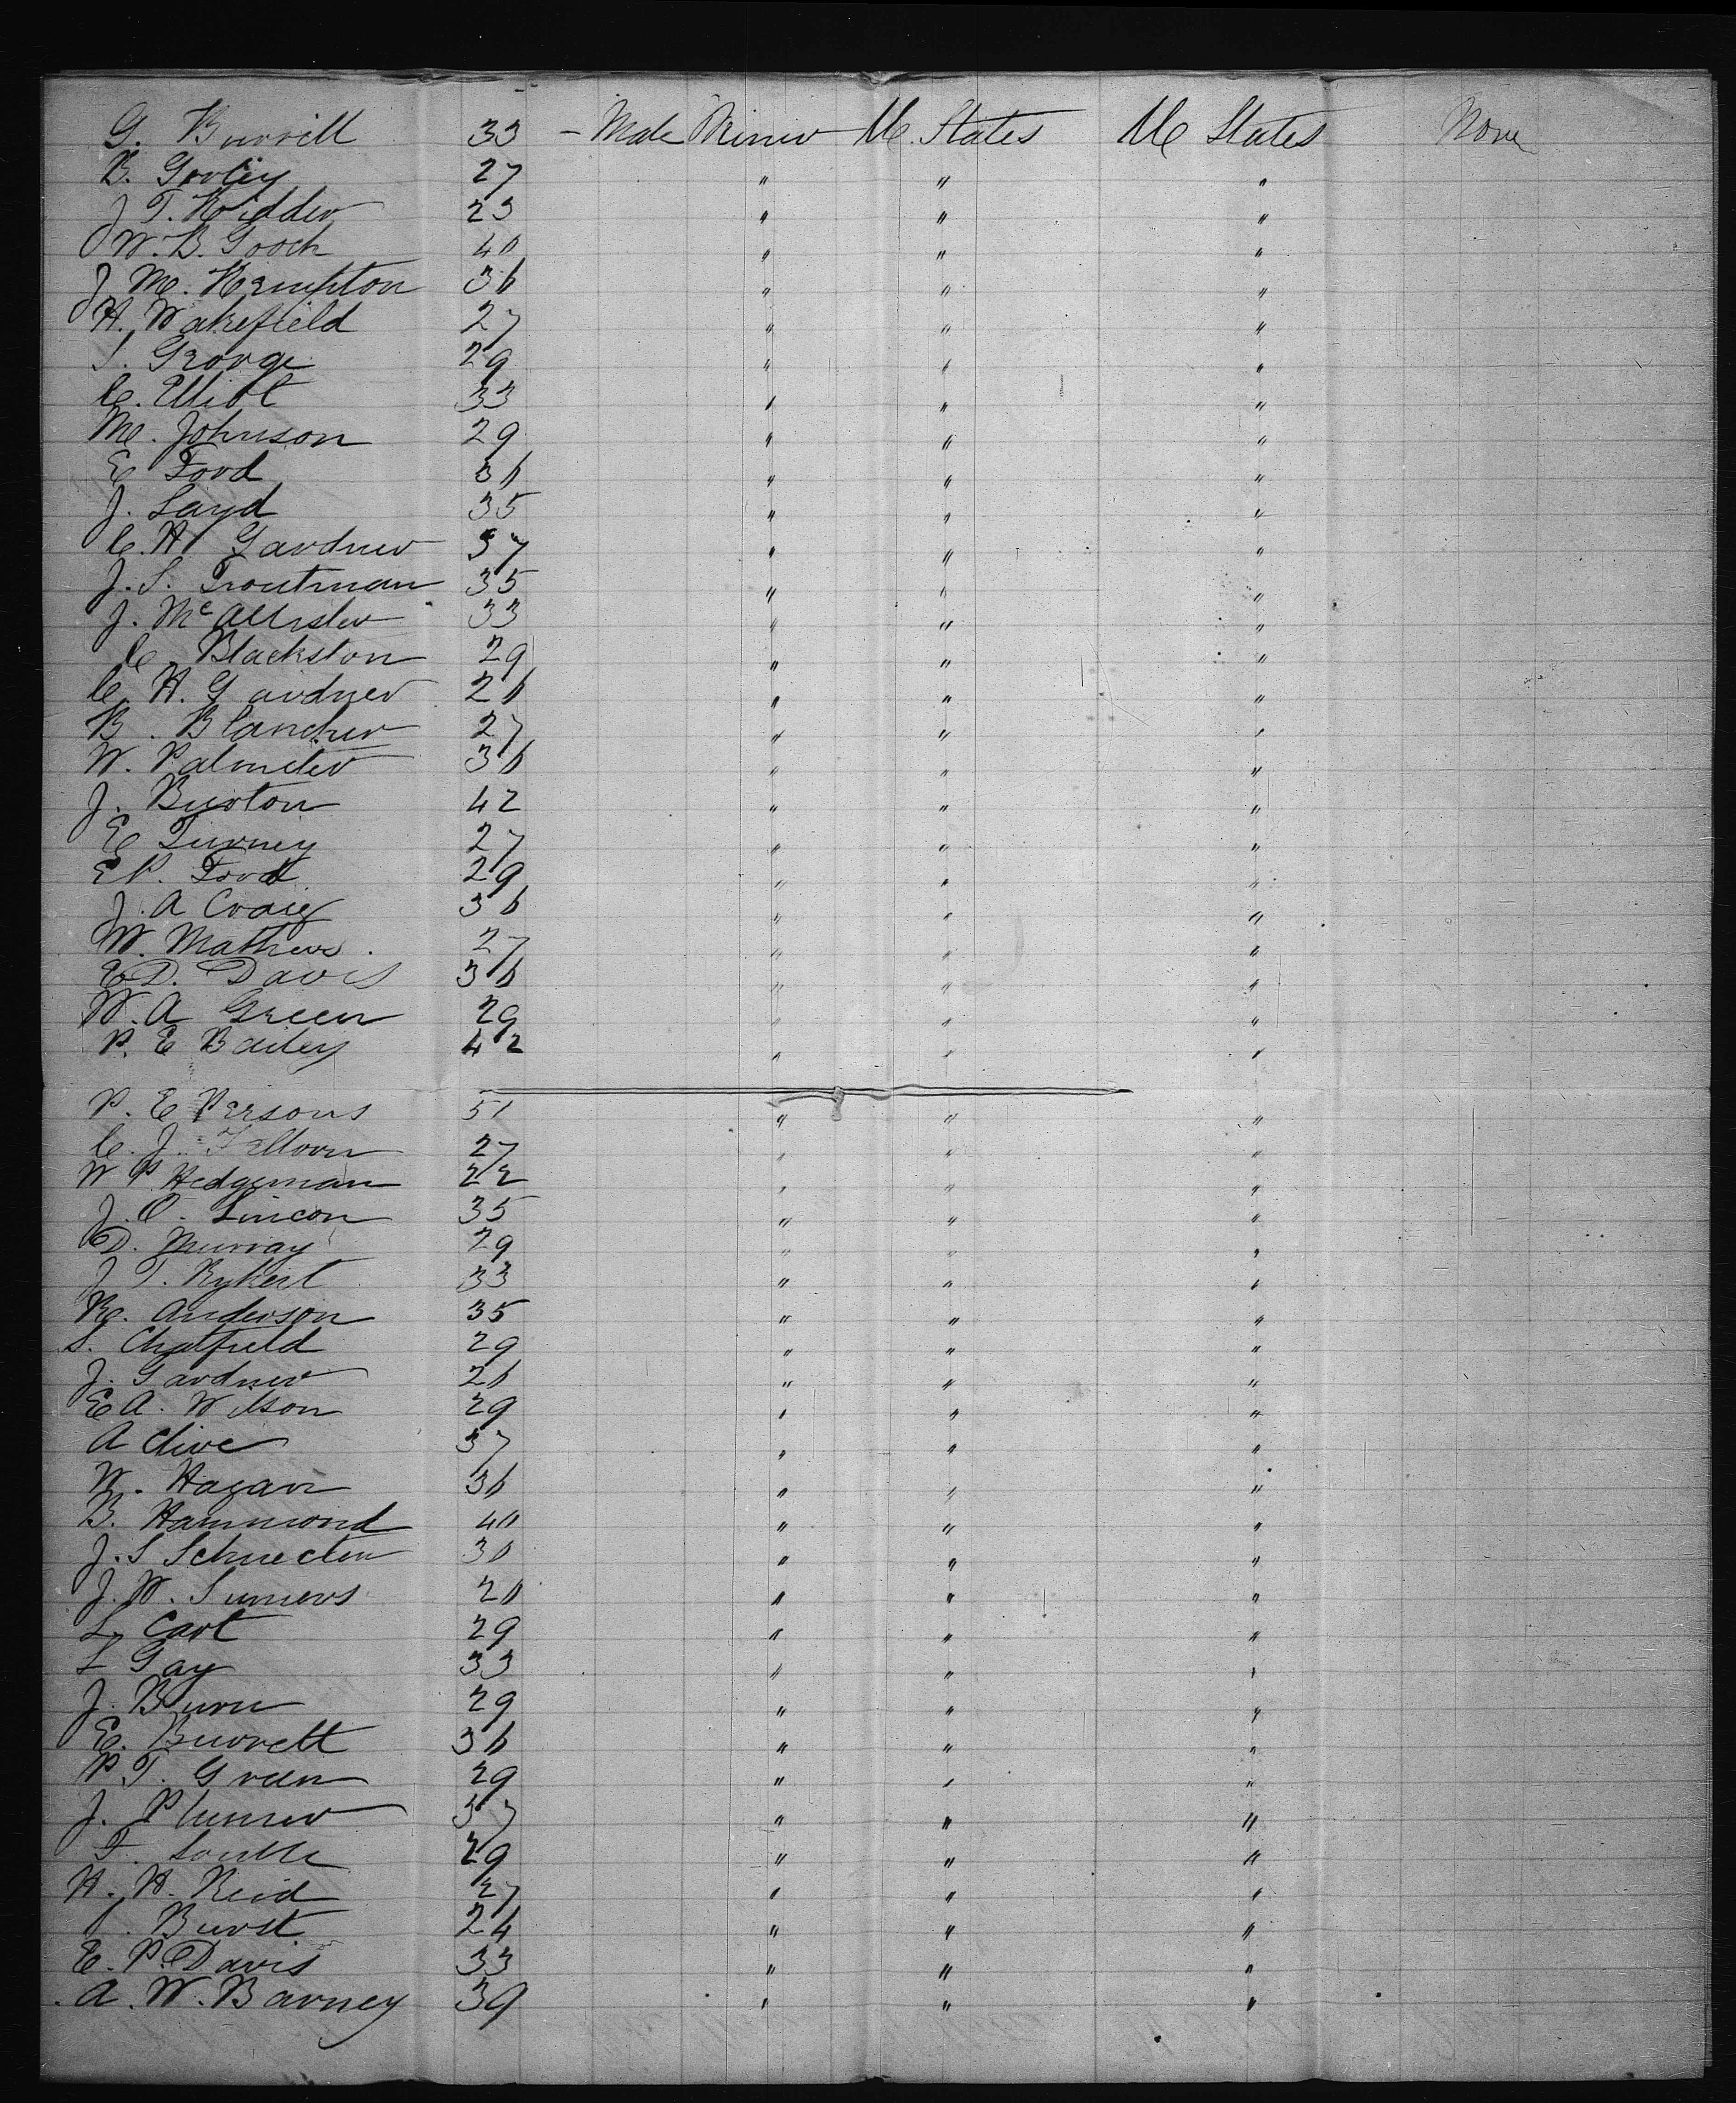 G. Burrell 33 - Male Miner U. States U States None
B. Gorley 27 " " "
J T. Kidder 23 " " "
W. B. Gooch 40 " " "
J M. Kempton 36 " " "
H. Wakefield 27 " " "
S. George 29 " " "
C. Elliot 33 " " "
M. Johnson 29 " " "
E Ford 36 " " "
J. Layd 35 " " "
C. H Gardner 37 " " "
J. S. Troutman 35 " " "
J. McAllister 33 " " "
C. Blackston 29 " " "
C. H. Gardner 26 " " "
B. Blancher 27 " " "
W. Palmeter 36 " " "
J. Burton 42 " " "
E Turney 27 " " "
E P. Ford 29 " " "
J. A Craig 36 " " "
W. Mathews 27 " " "
E D. Davis 36 " " "
W. A Green 29 " " "
P. E Bailey 42 " " "
P. E Persons 51 " " "
C. J. 27 " " "
W P Hedgeman 22 " " "
J. O. Lincon 35 " " "
D. Murray 29 " " "
J T. Rykert 33 " " "
R. Anderson 35 " " "
S. Chatfield 29 " " "
J. Gardner 26 " " "
E A. Wilson 29 " " "
A Clive 37 " " "
W. Hagan 36 " " "
B. Hammond 40 " " "
J. S 30 " " "
J. W. Sumers 20 " " "
L. Cart 29 " " "
L Gay 33 " " "
J. Burn 29 " " "
E. Burrett 36 " " "
P. T. Green 29 " " "
J. Plumer 37 " " "
F. 29 " " "
H. H. Reid 27 " " "
Burst 24 " " "
E. P. Davis 33 " " "
A. W. Barney 39 " " "